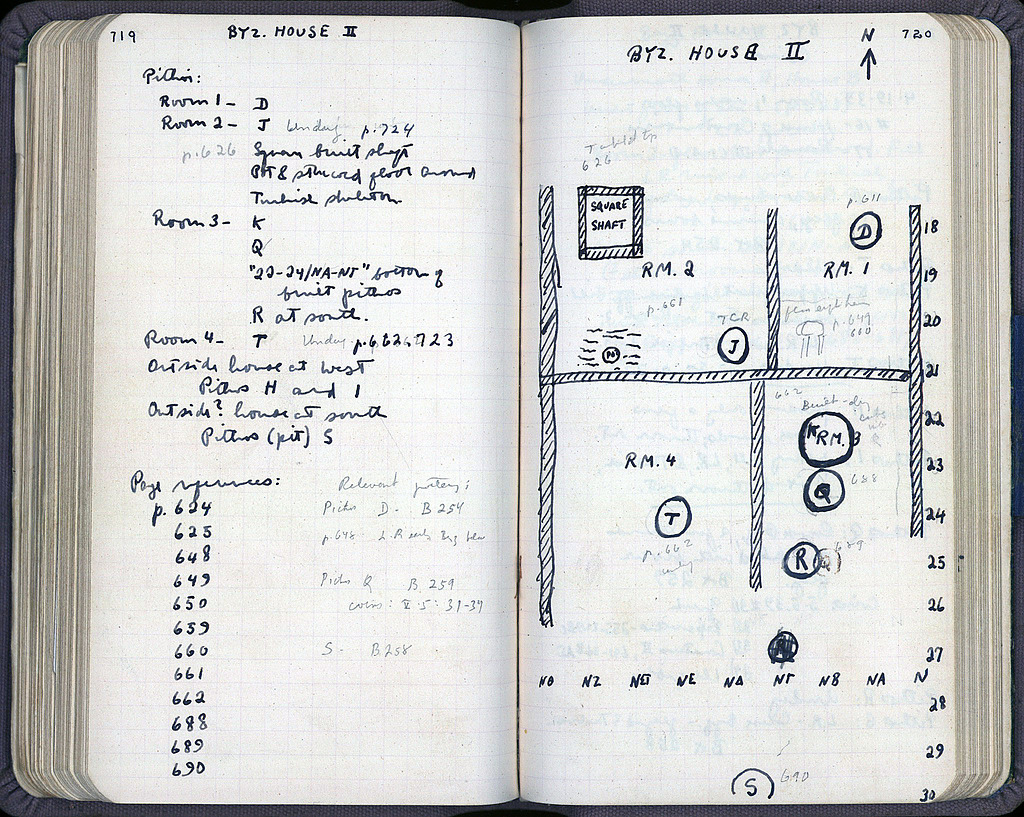 719
BYZ. HOUSE II
Pithoi:
Room 1 - D
Room 2 - J p.724
p.626 Square built shaft
Pit & stuccoed floor around
Turkish skeleton.
Room 3 - K
Q
"22-24/NA-NΓ" bottom of
built pithos
R at south.
Room 4 - T
Outside house at West
Pithos H and I
Outside? house at south
Pithos (pit) S
Page references:
p. 624
625
648
649
650
659
660
661
662
688
689
690
Relevant pottery:
Pithos D. - B 254
p.648 -
Pithos Q B 259
coins: V 5: 31-34
S - B 258
720
BYZ. HOUSE II
N
626
SQUARE
SHAFT
p.611
D
18
RM. 2
RM. 1
19
p.661
20
TCR
p.649
660
J
21
662
22
K
RM. 3
RM. 4
23
Q
688
T
24
p.662
R
689
25
26
27
NΘ NZ NE NΔ NΓ NB NA N
28
29
S
690
30